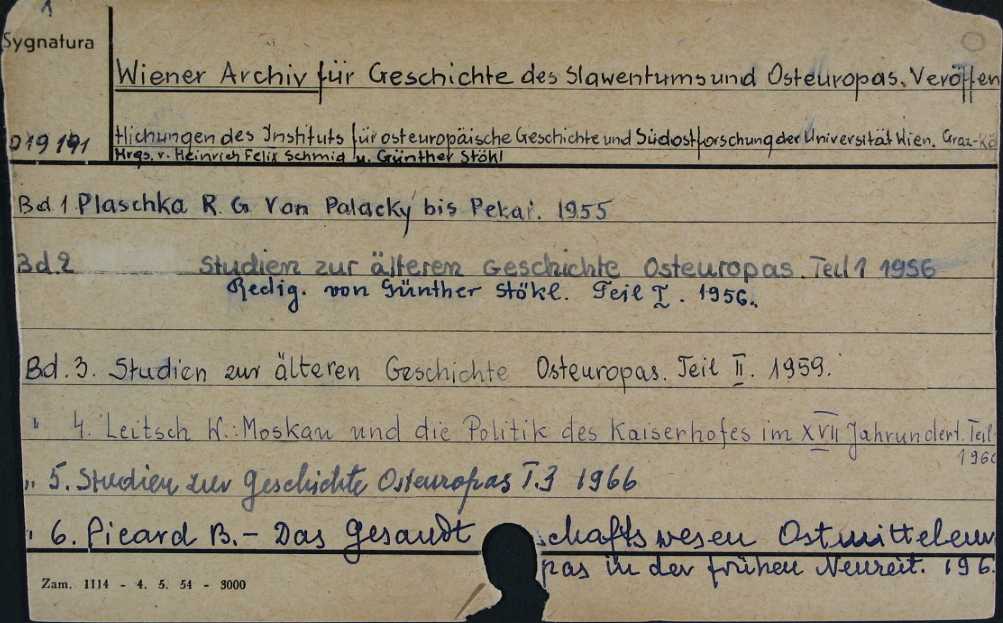 1
Sygnatura
Wiener Archiv für Geschichte des Slawentums und Osteuropas. Veröffen
D19191 tlichungen des Instituts für osteuropäische Geschichte und Südostforschung der Universität Wien. Graz-Kö
Hrgs. v. Heinrich Felix Schmid u. Günther Stökl
Bd. 1 Plaschka R. G. Von Palacky bis Pekař. 1955
Bd. 2 Studien zur älteren Geschichte Osteuropas. Teil 1 1956
Redig. von Günther Stökl. Teil I. 1956.
Bd. 3. Studien zur älteren Geschichte Osteuropas. Teil II. 1959.
" 4. Leitsch W.: Moskau und die Politik des Kaiserhofes im XVII Jahrundert. Teil
1960
" 5. Studien zur Geschichte Osteuropas T.3 1966
" 6. Picard B. - Das Gesandt schaftswesen Ostmitteleur
pas in der frühen Neuzeit. 196
Zam. 1114 - 4. 5. 54 - 3000